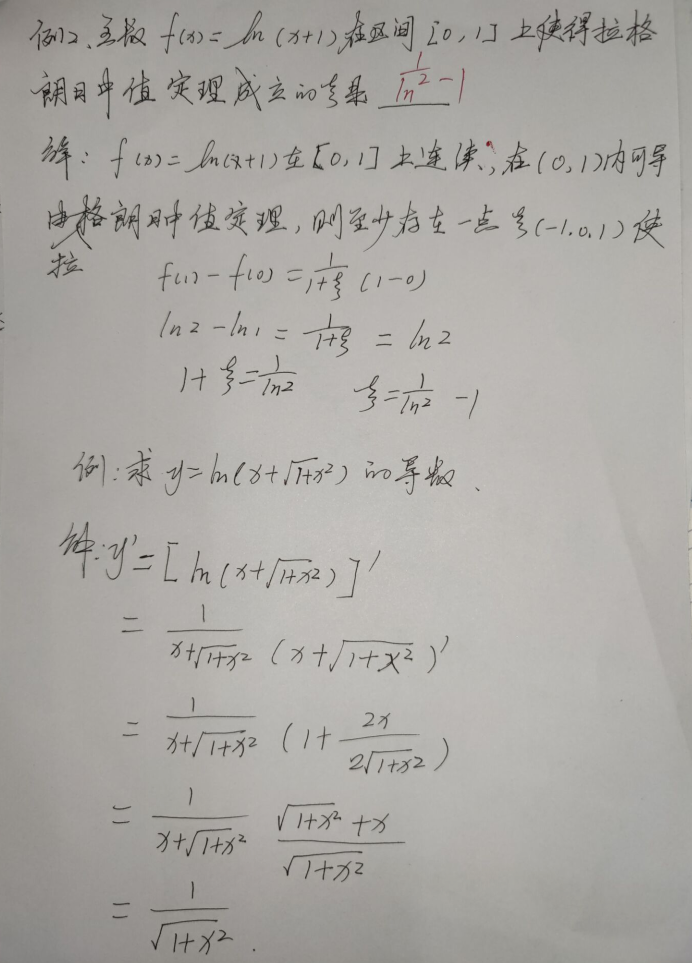 例2、函数 f(x) = ln (x+1) 在区间 [0,1] 上使得拉格
朗日中值定理成立的ξ是 1/ln2 - 1
解: f(x) = ln(x+1) 在 [0,1] 上连续, 在 (0,1) 内可导
由拉格朗日中值定理, 则至少存在一点 ξ(-1.0,1) 使
f(1) - f(0) = 1/(1+ξ) (1-0)
ln2 - ln1 = 1/(1+ξ) = ln2
1+ξ = 1/ln2 ξ = 1/ln2 - 1
例: 求 y = ln(x+√(1+x²)) 的导数.
解: y' = [ln(x+√(1+x²))]'
= 1/(x+√(1+x²)) (x+√(1+x²))'
= 1/(x+√(1+x²)) (1 + 2x/(2√(1+x²)))
= 1/(x+√(1+x²)) (√(1+x²)+x)/√(1+x²)
= 1/√(1+x²).